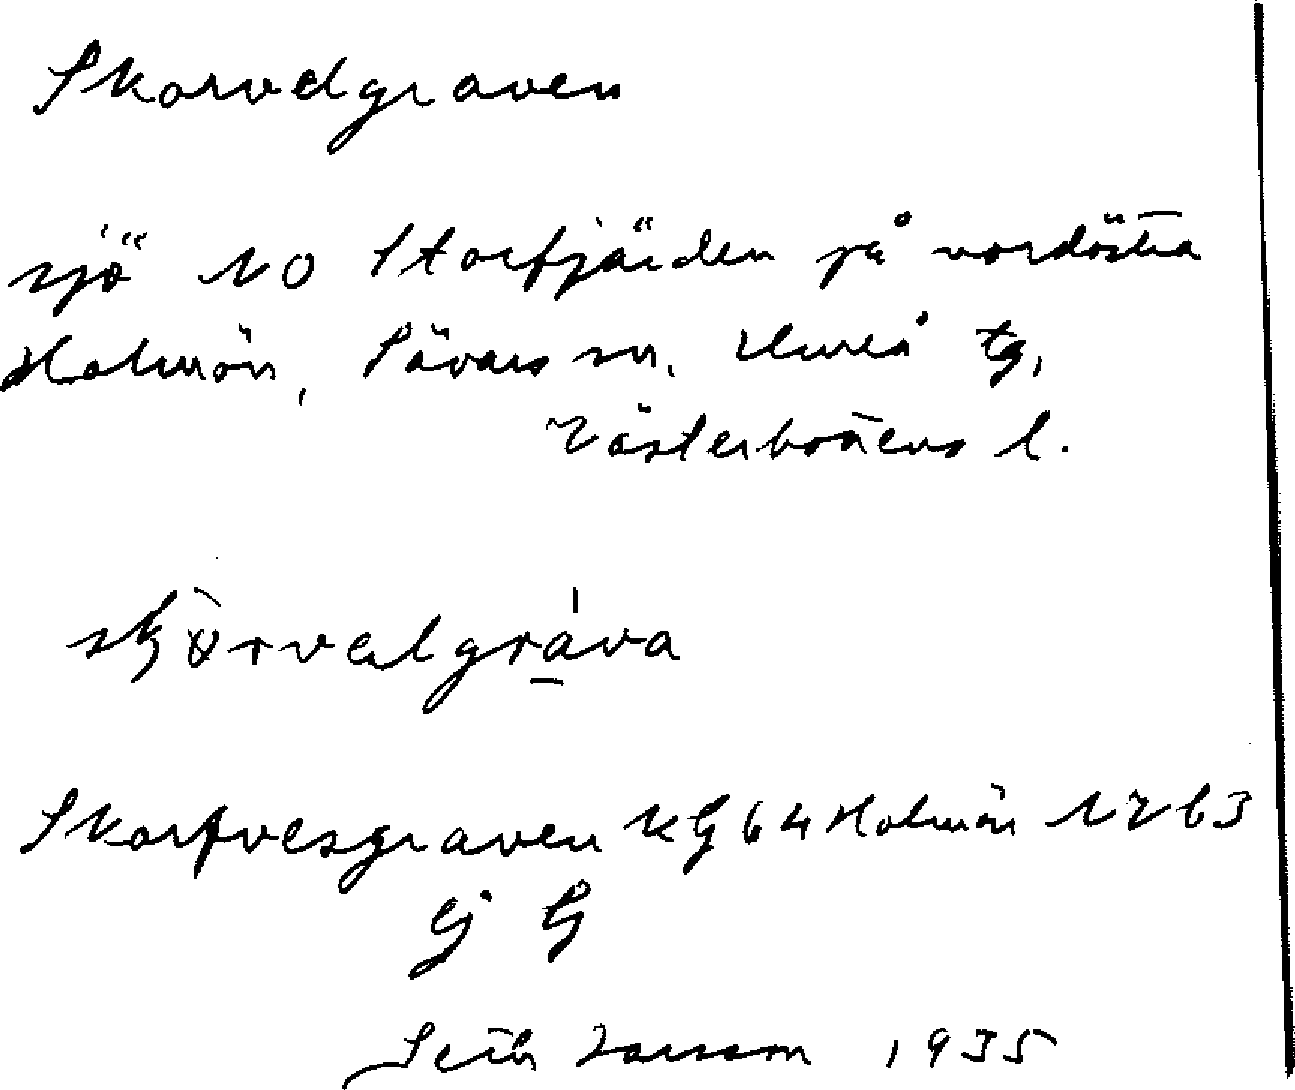 Skorvelgraven
sjö NO Storfjärden på nordöstra
Holmön, Sävars sn, Umeå tg,
Västerbottens l.
Skorfvelsgraven KG 64 Holmön NV 63
Ej G
Seth Larsson 1935